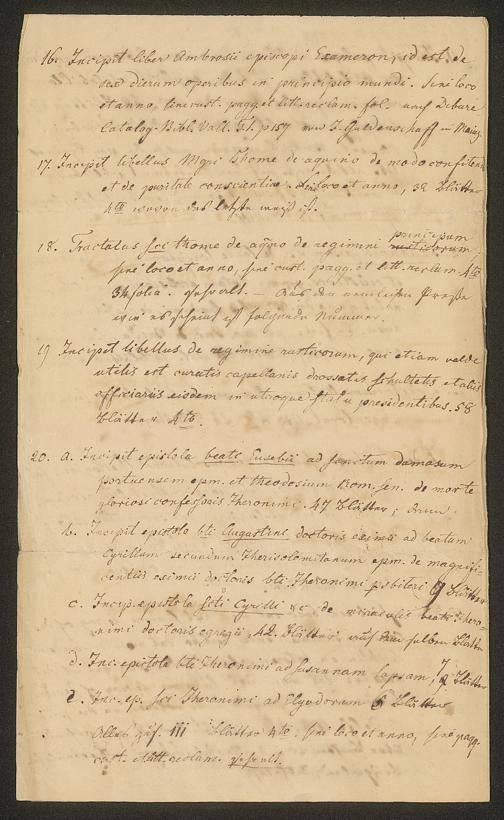 16. Incipit liber Ambrosii episcopi Exameron, id est de
sex dierum operibus in principio mundi. Sine loco
et anno, sine cust. pagg. et litt. reclam. fol. auf Debure
Catalog. Bibl. Vall. T.I. p 157 von J. Guldenschaff in Mainz
17. Incipit libellus Mgri Thome de aquino de modo confitendi
et de puritate conscientie. Sine loco et anno, 32 Blätter
4to wovon das letzte weiß ist.
18. Tractatus sci thome de aqno de regimini principum
rusticorum,
sine loco et anno, sine cust. pagg. et litt. reclam. 4to
34 folia. — Aus der nemlichen Presse
wie es scheint ist folgende Nummer.
19 Incipit libellus de regimine rusticorum, qui etiam valde
utilis est curatis capellanis drossatis schultetis et aliis
officiariis eisdem in utroque statu presidentibus. 58
Blätter 4to.
20. a. Incipit epistola beati Eusebii ad sanctum damasum
portuensem epm. et theodosium Rom. sen. de morte
gloriosi confessoris Iheronimi. 47 Blätter;
b. Incipit epistola bti Augustini doctoris eximii ad beatum
Cyrillum secundum Iherisolomitanum epm. de magnifi-
centiis eximii doctoris bti Iheronimi psbiteri 9 Blätter
c. Incip. epistola scti Cyrilli &c de miraculis beati Ihero-
nimi doctoris egregii, 42. Blätter auf dem selben Blatte
d. Inc. epistole bti Iheronimi ad susannam lapsam, 7 Blätter
e. Inc. ep. sci Iheronimi ad Elyodorum 6 Blätter
Alles zus. 111 Blätter 4to. sine loco et anno, sine pagg.
cust. et litt. reclam.